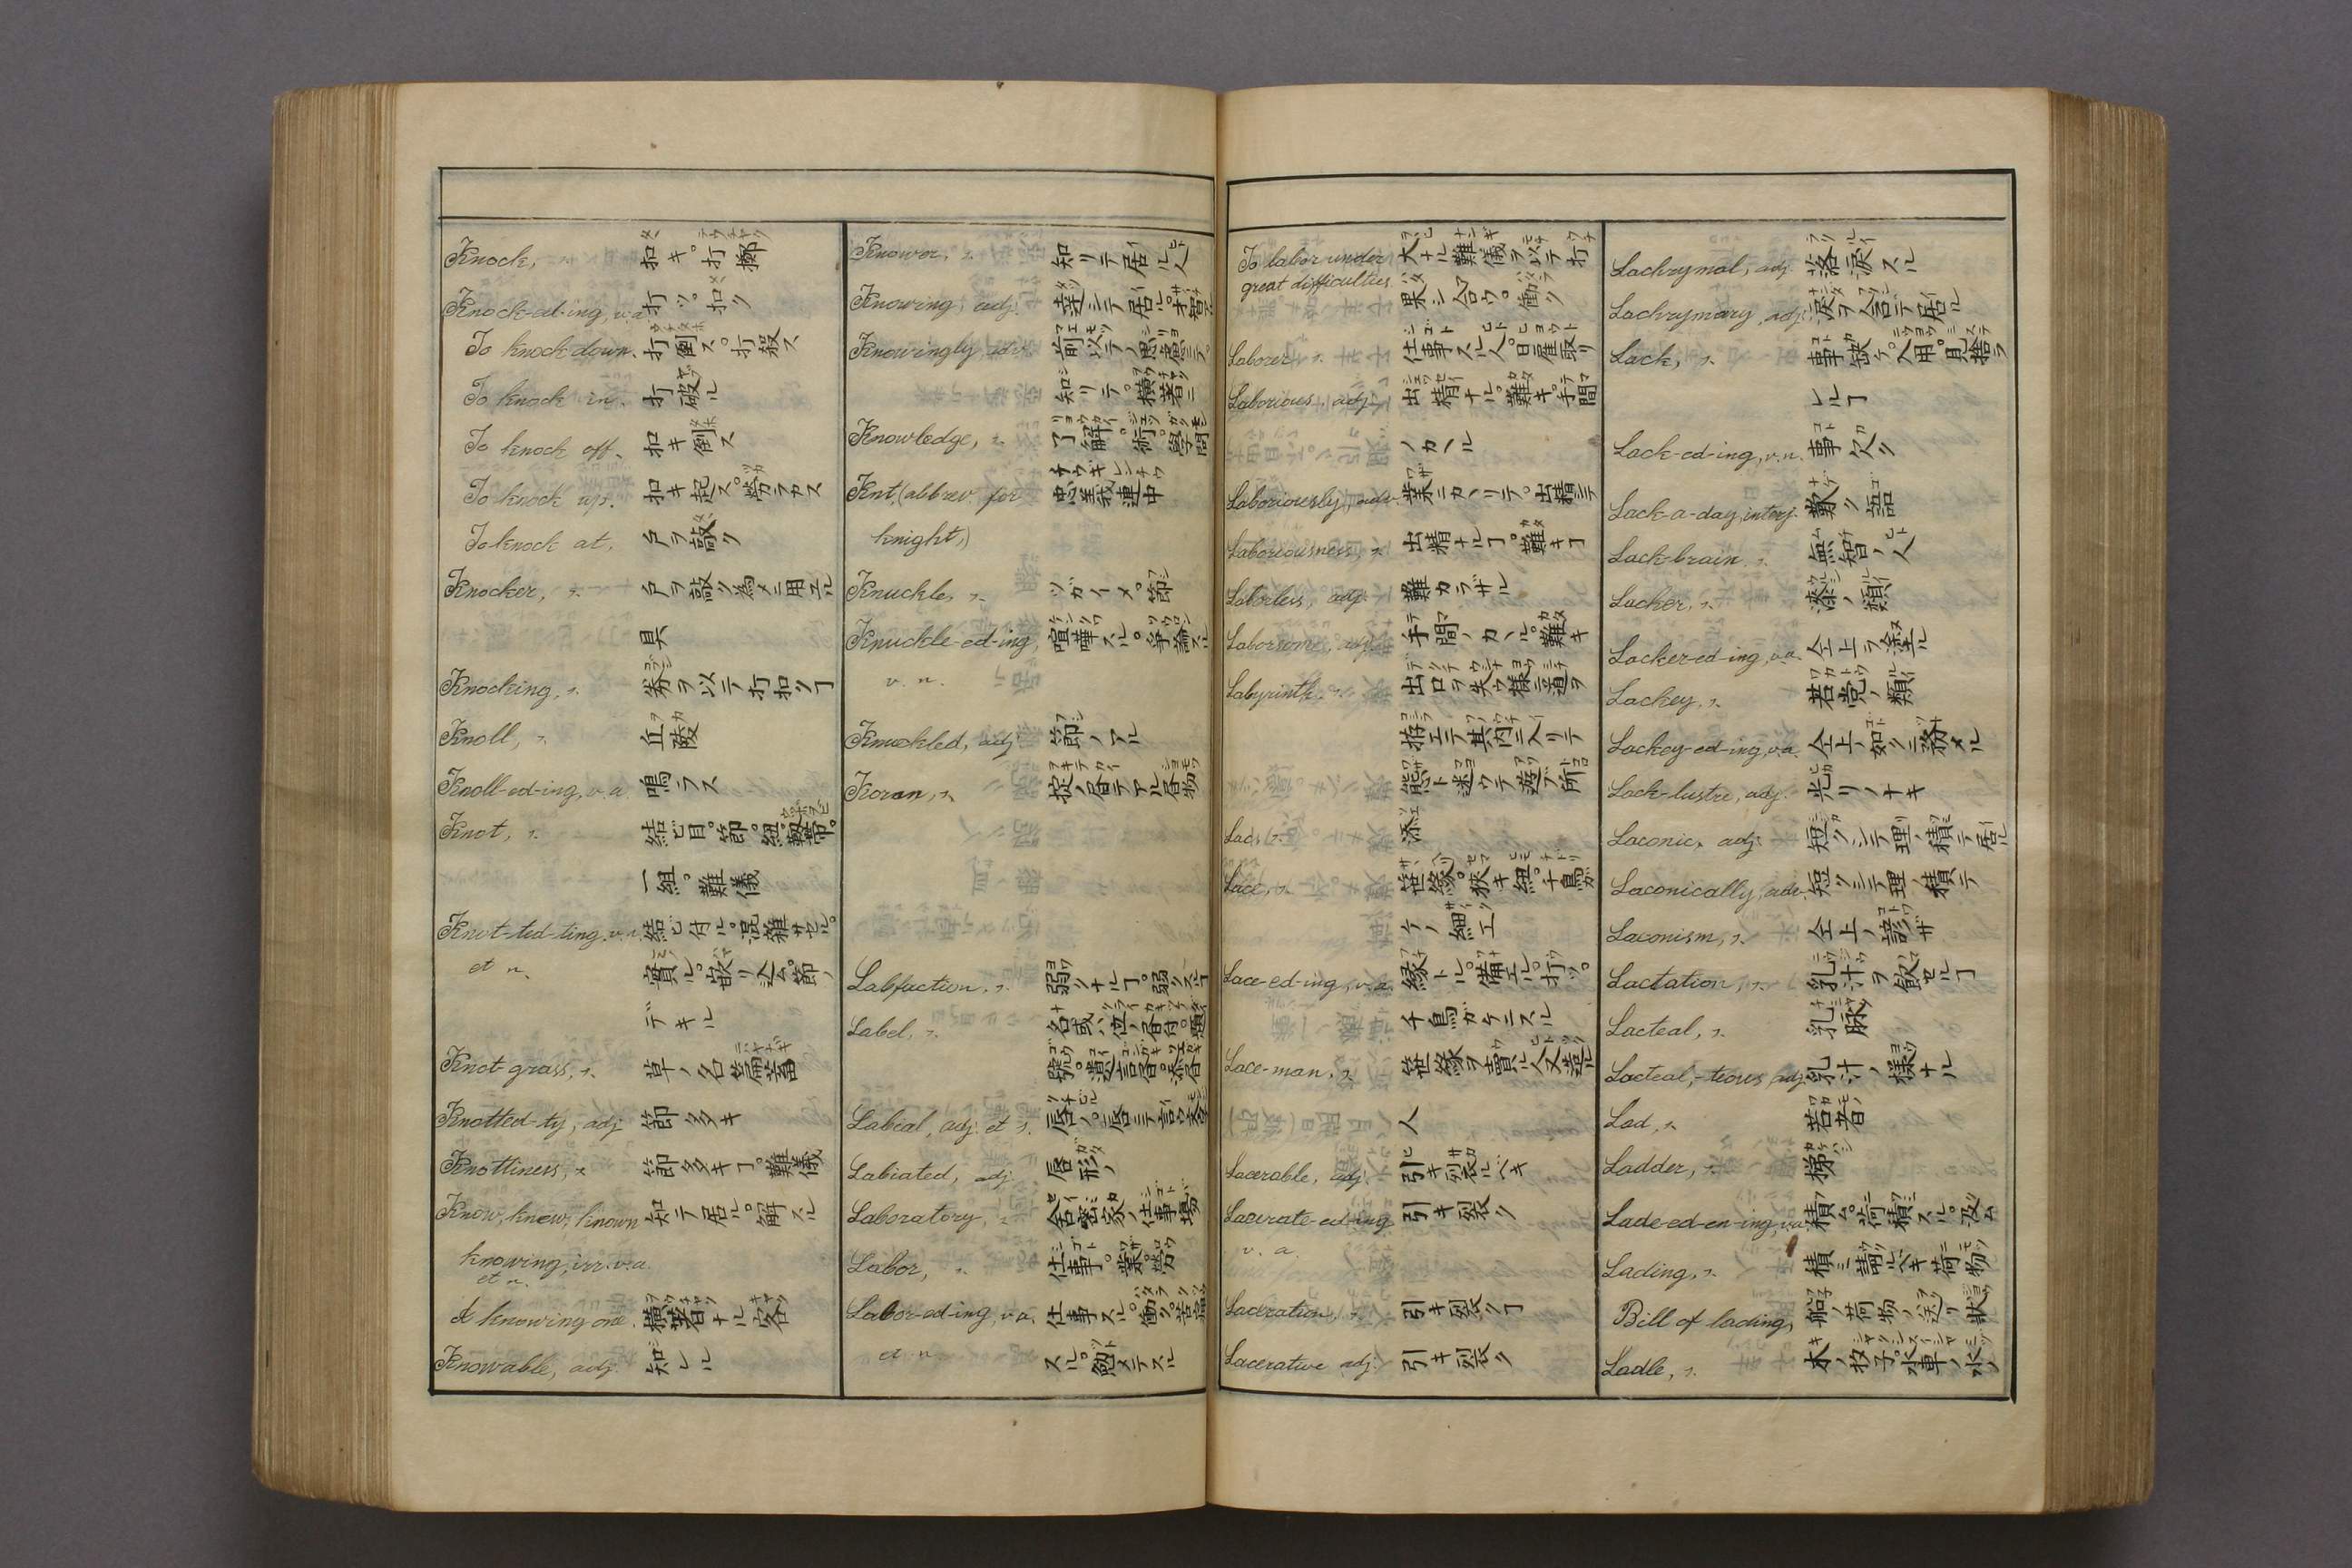 Knock, s. 扣キ。打擲
Knock-ed-ing, v.a. 打ツ。扣ク
To knock down. 打倒ス。打殺ス
To knock in. 打破ル
To knock off. 扣キ倒ス
To knock up. 扣キ起ス。勞ラカス
To knock at. 戸ヲ敲ク
Knocker, s. 戸ヲ敲ク為メニ用ユル
具
Knocking, s. 拳ヲ以テ打扣クヿ
Knoll, s. 丘陵
Knoll-ed-ing, v.a. 鳴ラス
Knot, s. 結ビ目。節。紐。
一組。難儀
Knot-ted-ting, v.a. 結ビ付ル。混雜サセル。
et n. 實ル。嵌リ込ム。節ノ
デキル
Knot-grass, s. 草ノ名 萹蓄
Knotted-ty, adj. 節多キ
Knottiness, s. 節多キヿ。難儀
Know, knew, known 知テ居ル。解スル
knowing, irr. v.a.
et n.
A knowing one. 橫著ナル客
Knowable, adj. 知レル
Knower, s. 知リテ居ル人
Knowing, adj. 達シテ居ル。才智ノ
Knowingly, adv. 前以テノ思慮ニテ。
知リテ。橫著ニ
Knowledge, s. 了解。術。學問
Knt. (abbrev. for 忠義連中
knight,)
Knuckle, s. ツガイメ。節
Knuckle-ed-ing, 喧嘩スル。爭論スル
v. n.
Knuckled, adj. 節ノアル
Koran, s. 掟ノ書テアル書物
Labfaction, s. 弱クナルヿ。弱クスルヿ
Label, s. 名或ハ位ノ書付。題
號。遺言書。添書
Labial, adj. et s. 唇ノ。唇ニテ言フ文字
Labiated, adj. 唇形ノ
Laboratory, s. 舎密家ノ仕事場
Labor, s. 仕事。業。勞
Labor-ed-ing, v.a. 仕事スル。働ク。苦勞
et n. スル。勉メテスル
To labor under 大ナル難儀ヲ以テ打
great difficulties. 果シ合フ。働ク
Laborer, s. 仕事スル人。日雇取リ
Laborious, adj. 出精ナル。難キ。手間
ノカヽル
Laboriously, adv. 業ニカヽリテ。出精ニテ
Laboriousness, s. 出精ナルヿ。難キヿ
Laborless, adj. 難カラザル
Laborsome, adj. 手間ノカヽル。難キ
Labyrinth, s. 出口ヲ失フ樣ニ道ヲ
拵エテ其內ニ入リテ
熊ト迷ウテ遊ブ所
Lac, s. 漆
Lace, s. 笹緣。狹キ紐。千鳥ガ
ケノ細工
Lace-ed-ing, v.a. 緣トル。備エル。打ツ。
千鳥ガケニスル
Lace-man, s. 笹緣ヲ賣ル人又造ル
人
Lacerable, adj. 引キ裂ルベキ
Lacerate-ed-ing 引キ裂ク
v. a.
Laceration, s. 引キ裂クヿ
Lacerative, adj. 引キ裂ク
Lachrymal, adj. 落淚スル
Lachrymary, adj. 淚ヲ含テ居ル
Lack, s. 事缺ケ。入用。見捨ラ
レルヿ
Lack-ed-ing, v.n. 事欠ク
Lack-a-day, interj. 歎ク語
Lack-brain, s. 無智ノ人
Lacker, s. 漆ノ類
Lacker-ed-ing, v.a. 仝上ヲ塗ル
Lackey, s. 若党ノ類
Lackey-ed-ing, v.a. 仝上ノ如クニ務メル
Lack-lustre, adj. 光リノナキ
Laconic, adj. 短クシテ理ノ積テ居ル
Laconically, adv. 短クシテ理ノ積テ
Laconism, s. 仝上ノ諺
Lactation, s. 乳汁ヲ飮セルヿ
Lacteal, s. 乳脉
Lacteal,-teous, adj. 乳汁ノ樣ナル
Lad, s. 若者
Ladder, s. 梯
Lade-ed-en-ing, v.a. 積ム。荷積スル。汲ム
Lading, s. 積ミ謂ルベキ荷物
Bill of lading, 船ノ荷物ノ送リ狀
Ladle, s. 木ノ杓子。水車ノ水ノ